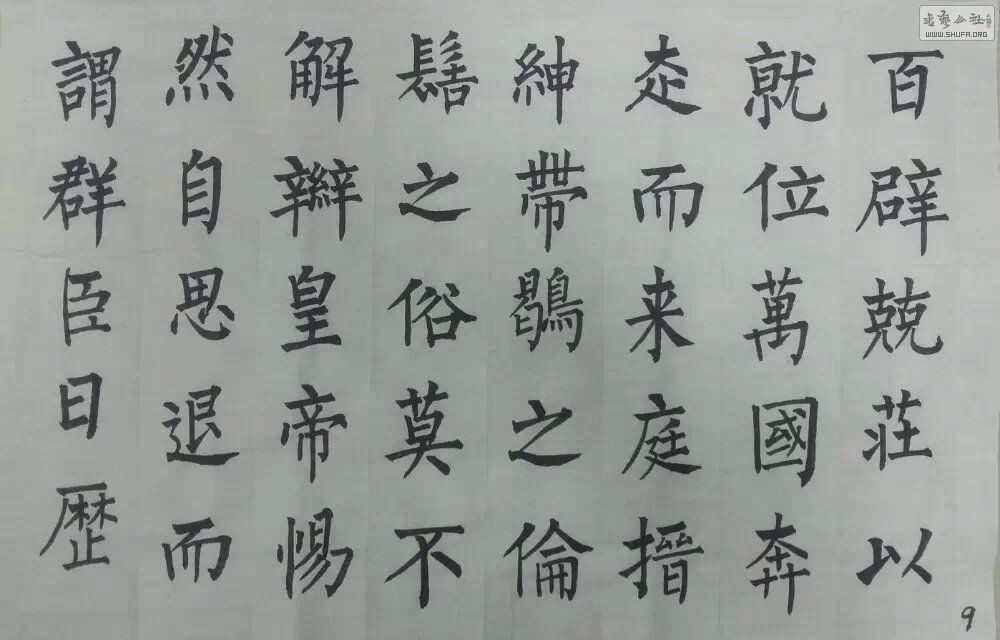 百辟兢莊以
就位萬國奔
走而来庭搢
紳帶鶡之倫
髽之俗莫不
解辮皇帝惕
然自思退而
謂群臣曰歷
9
WWW.SHUFA.ORG